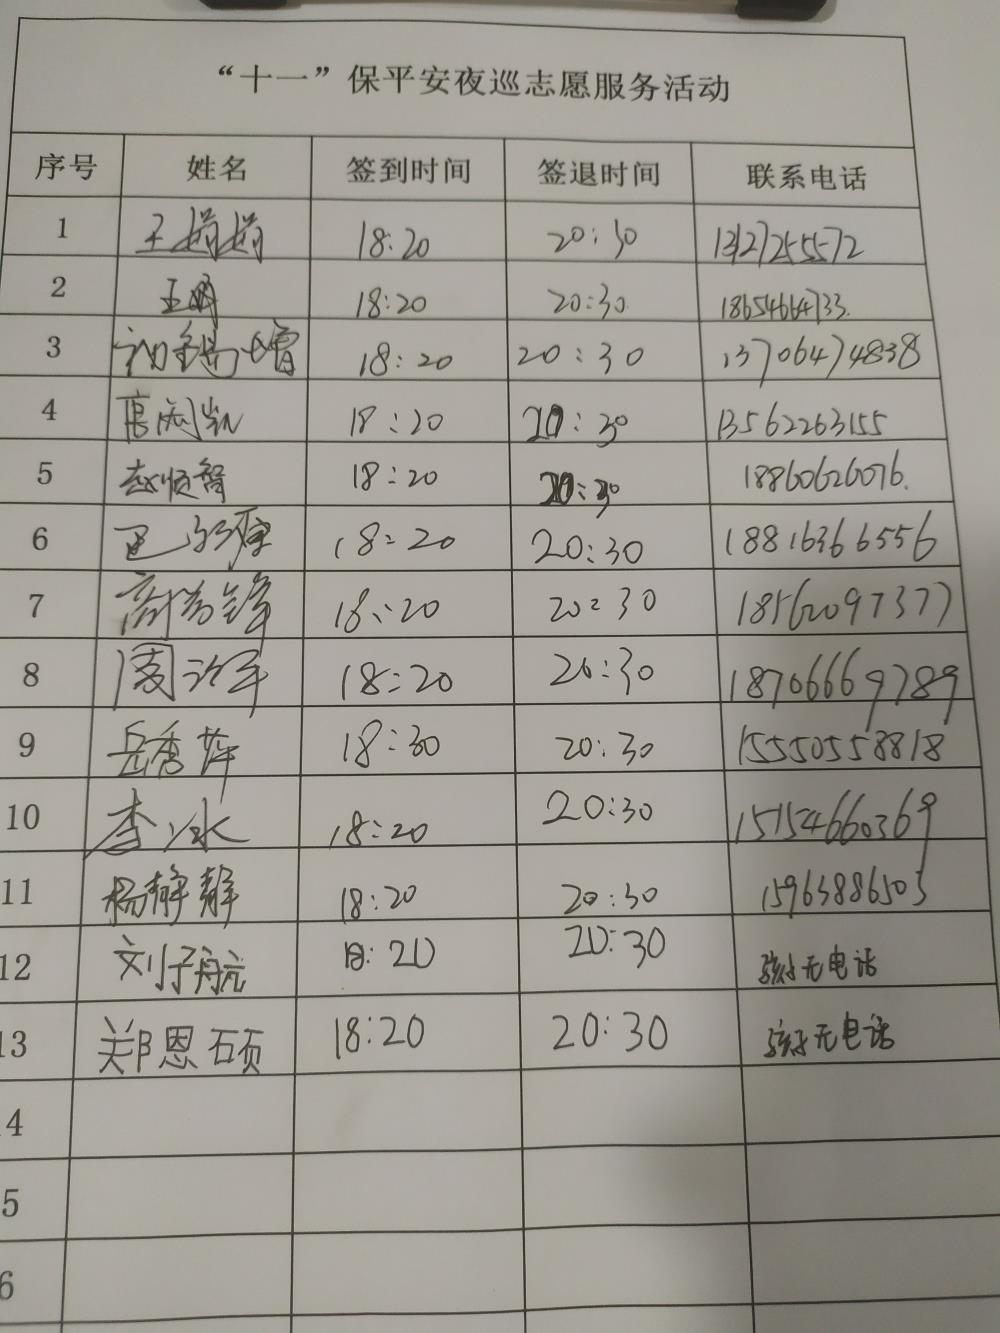 “十一”保平安夜巡志愿服务活动
序号 姓名 签到时间 签退时间 联系电话
1 王娟娟 18:20 20:30
2 18:20 20:30 18654664733.
3 18:20 20:30 13706474838
4 18:20 20:30 13562263155
5 赵顺智 18:20 20:30 18860626076.
6 18:20 20:30 18816366556
7 18:20 20:30 18562097377
8 18:20 20:30 18706669789
9 岳秀萍 18:30 20:30 15550558818
10 李冰 18:20 20:30 15154660369
11 杨静静 18:20 20:30 15963886503
12 刘子航 18:20 20:30 孩子无电话
13 郑恩硕 18:20 20:30 孩子无电话
4
5
6